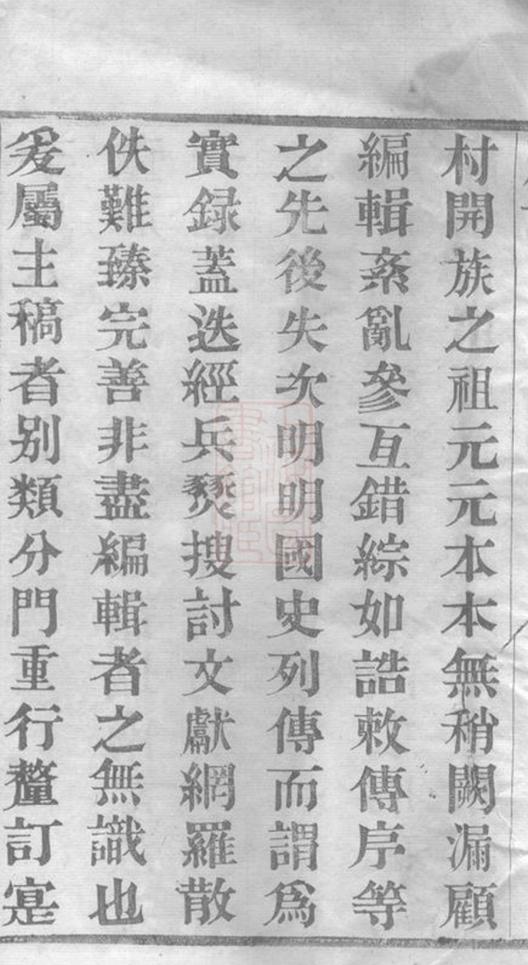 村開族之祖元元本本無稍闕漏顧
編輯紊亂參互錯綜如誥敕傳序等
之先後失次明明國史列傳而謂為
實録葢迭經兵燹搜討文獻網羅散
佚難臻完善非盡編輯者之無識也
爰屬主稿者别類分門重行釐訂寔